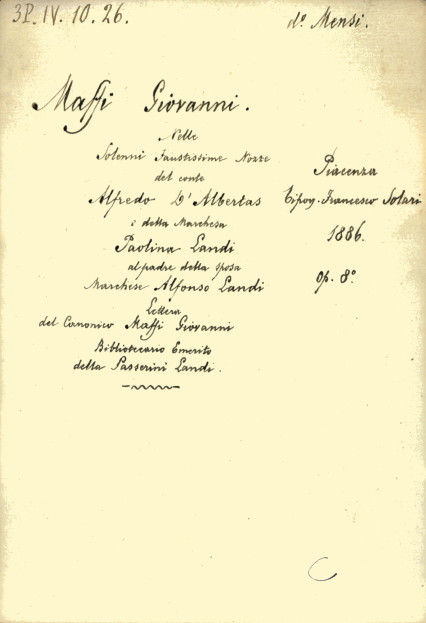 3P. IV. 10. 26.
dº. Mensi.
Maffi Giovanni.
Nelle
Solenni Faustissime Nozze
del conte
Alfredo D'Albertas
e della Marchesa
Paolina Landi
al padre della sposa
Marchese Alfonso Landi
Lettera
del Canonico Maffi Giovanni
Bibliotecario Emerito
della Passerini Landi.
Piacenza
Tipog. Francesco Solari
1886.
op. 8º